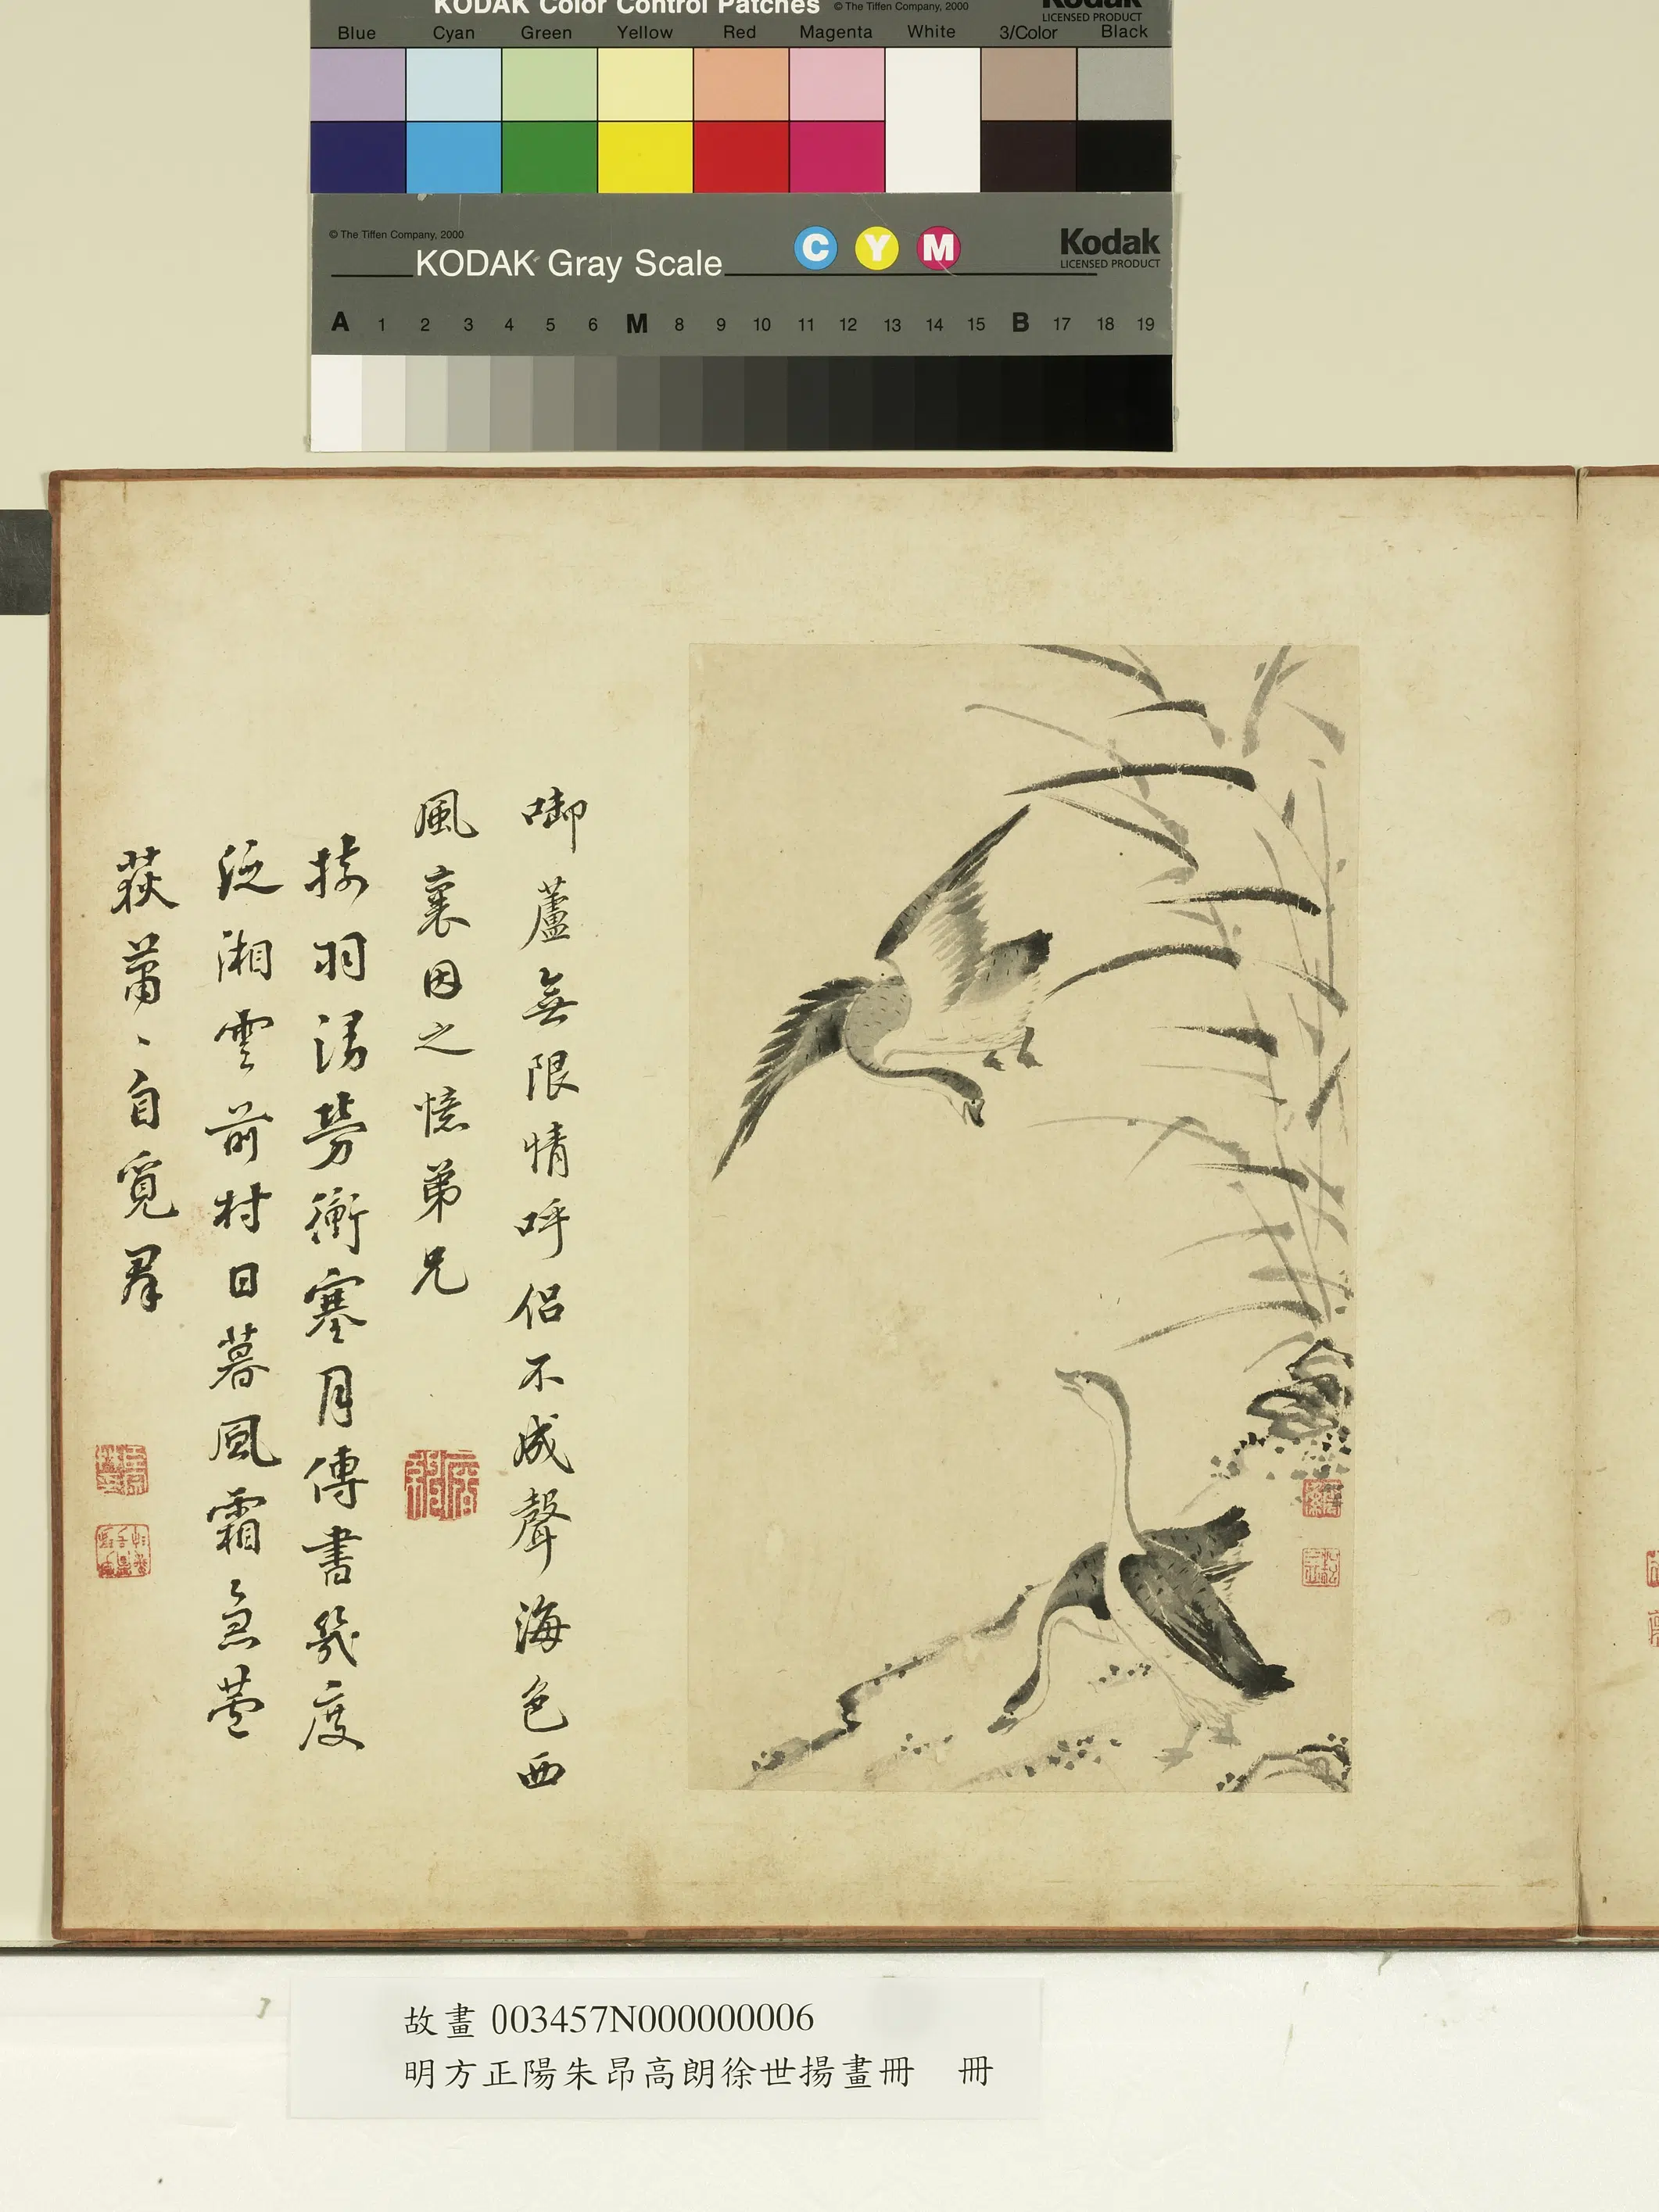 KODAK Color Control Patches © The Tiffen Company, 2000 Kodak
LICENSED PRODUCT
Blue Cyan Green Yellow Red Magenta White 3/Color Black
© The Tiffen Company, 2000
KODAK Gray Scale C Y M Kodak
LICENSED PRODUCT
A 1 2 3 4 5 6 M 8 9 10 11 12 13 14 15 B 17 18 19
啣蘆無限情呼侶不成聲海色西
風裏因之憶弟兄
羽勞衡塞月傳書幾度
泛湘雲前村日暮風霜急蘆
荻蕭、自覓群
故畫 003457N000000006
明方正陽朱昂高朗徐世揚畫冊 冊